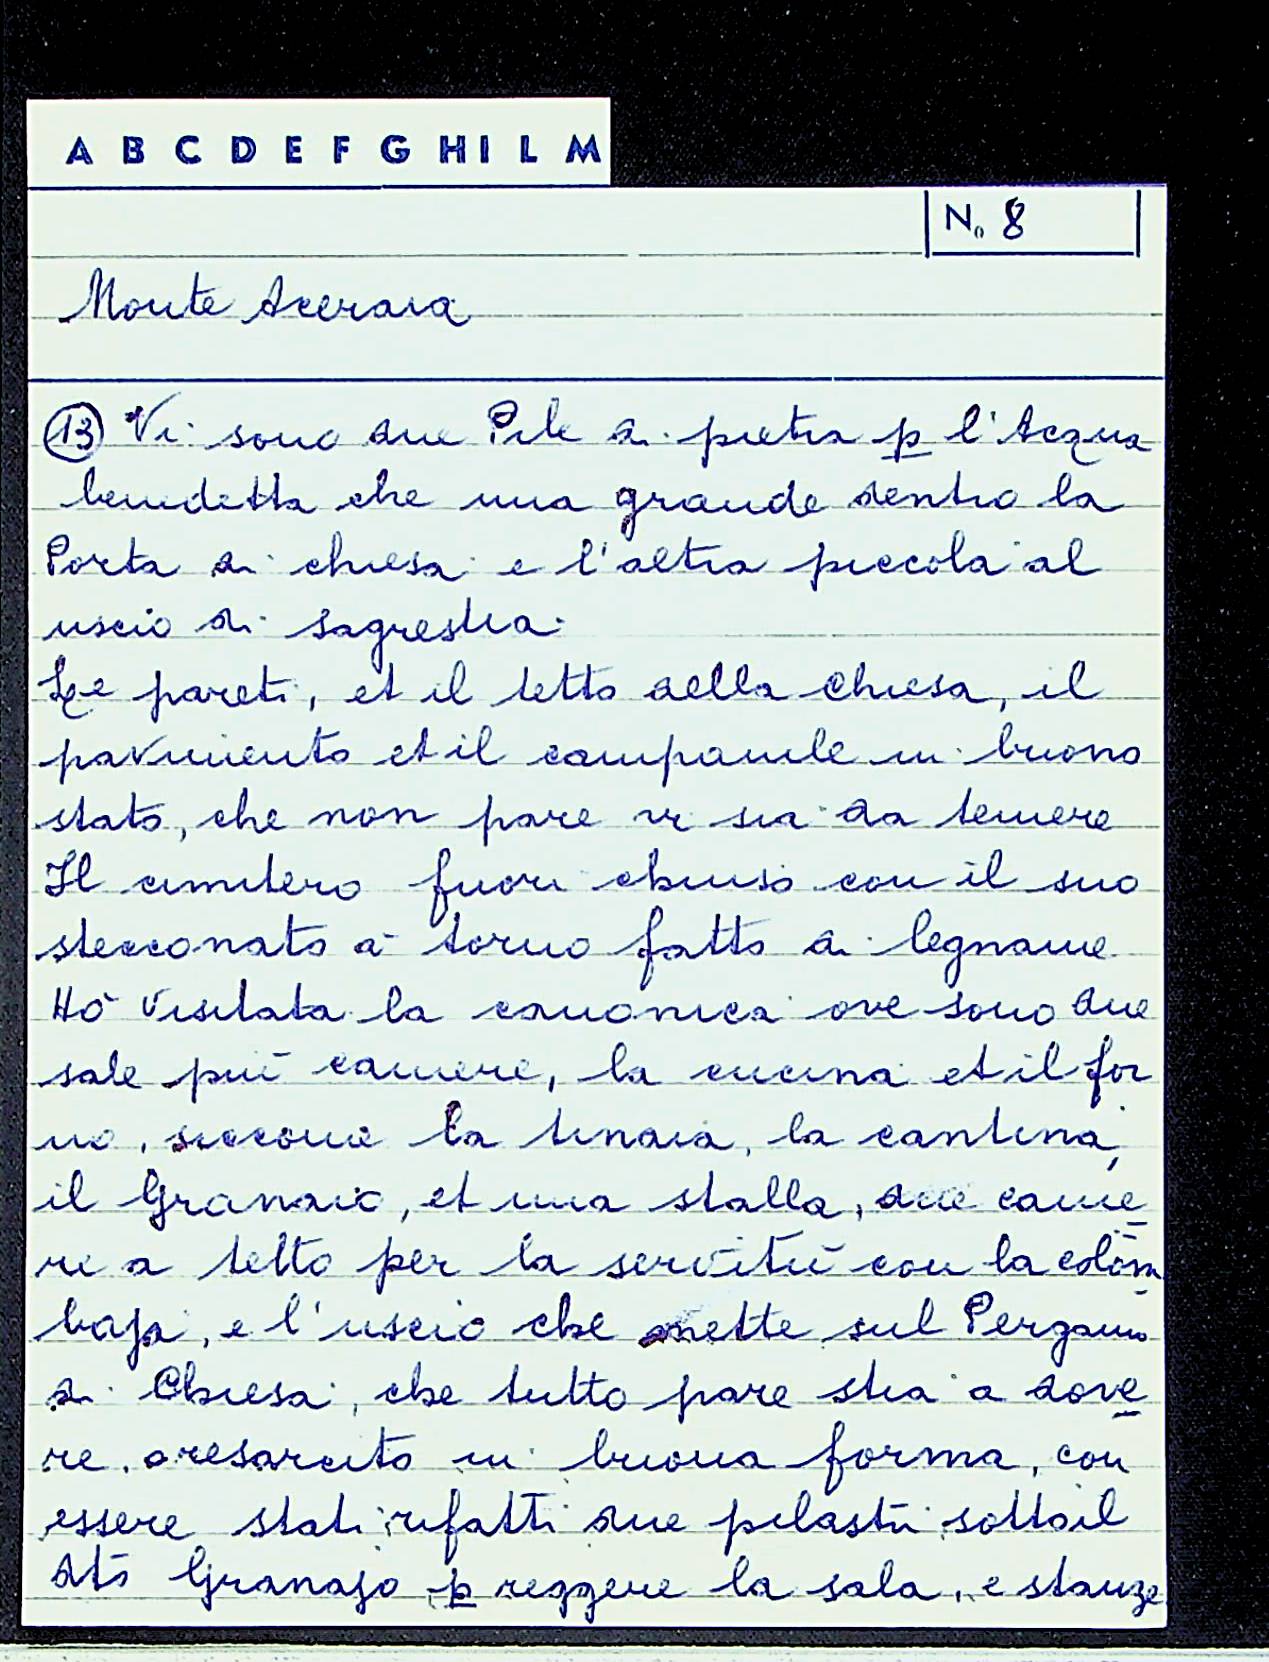 A B C D E F G H I L M
N. 8
Monte Aceraia
(13) Vi sono due Pile di pietra p l'Acqua
benedetta che una grande dentro la
Porta di chiesa e l'altra piccola al
uscio di sagrestia.
Le pareti, et il tetto della chiesa, il
pavimento et il campanile in buono
stato, che non pare vi sia da temere
Il cimitero fuori chiuso con il suo
stecconato a torno fatto di legname
Hò visitata la canonica ove sono due
sale più camere, la cucina et il for
no, siccome la tinaia, la cantina,
il Granaio, et una stalla, due came
re a tetto per la servitù con la colom
baja, e l'uscio che mette sul Pergamo
di Chiesa, che tutto pare stia a dove
re, o resarcito in buona forma, con
essere stati rifatti due pilastri sotto il
dtò Granajo p reggere la sala, e stanze